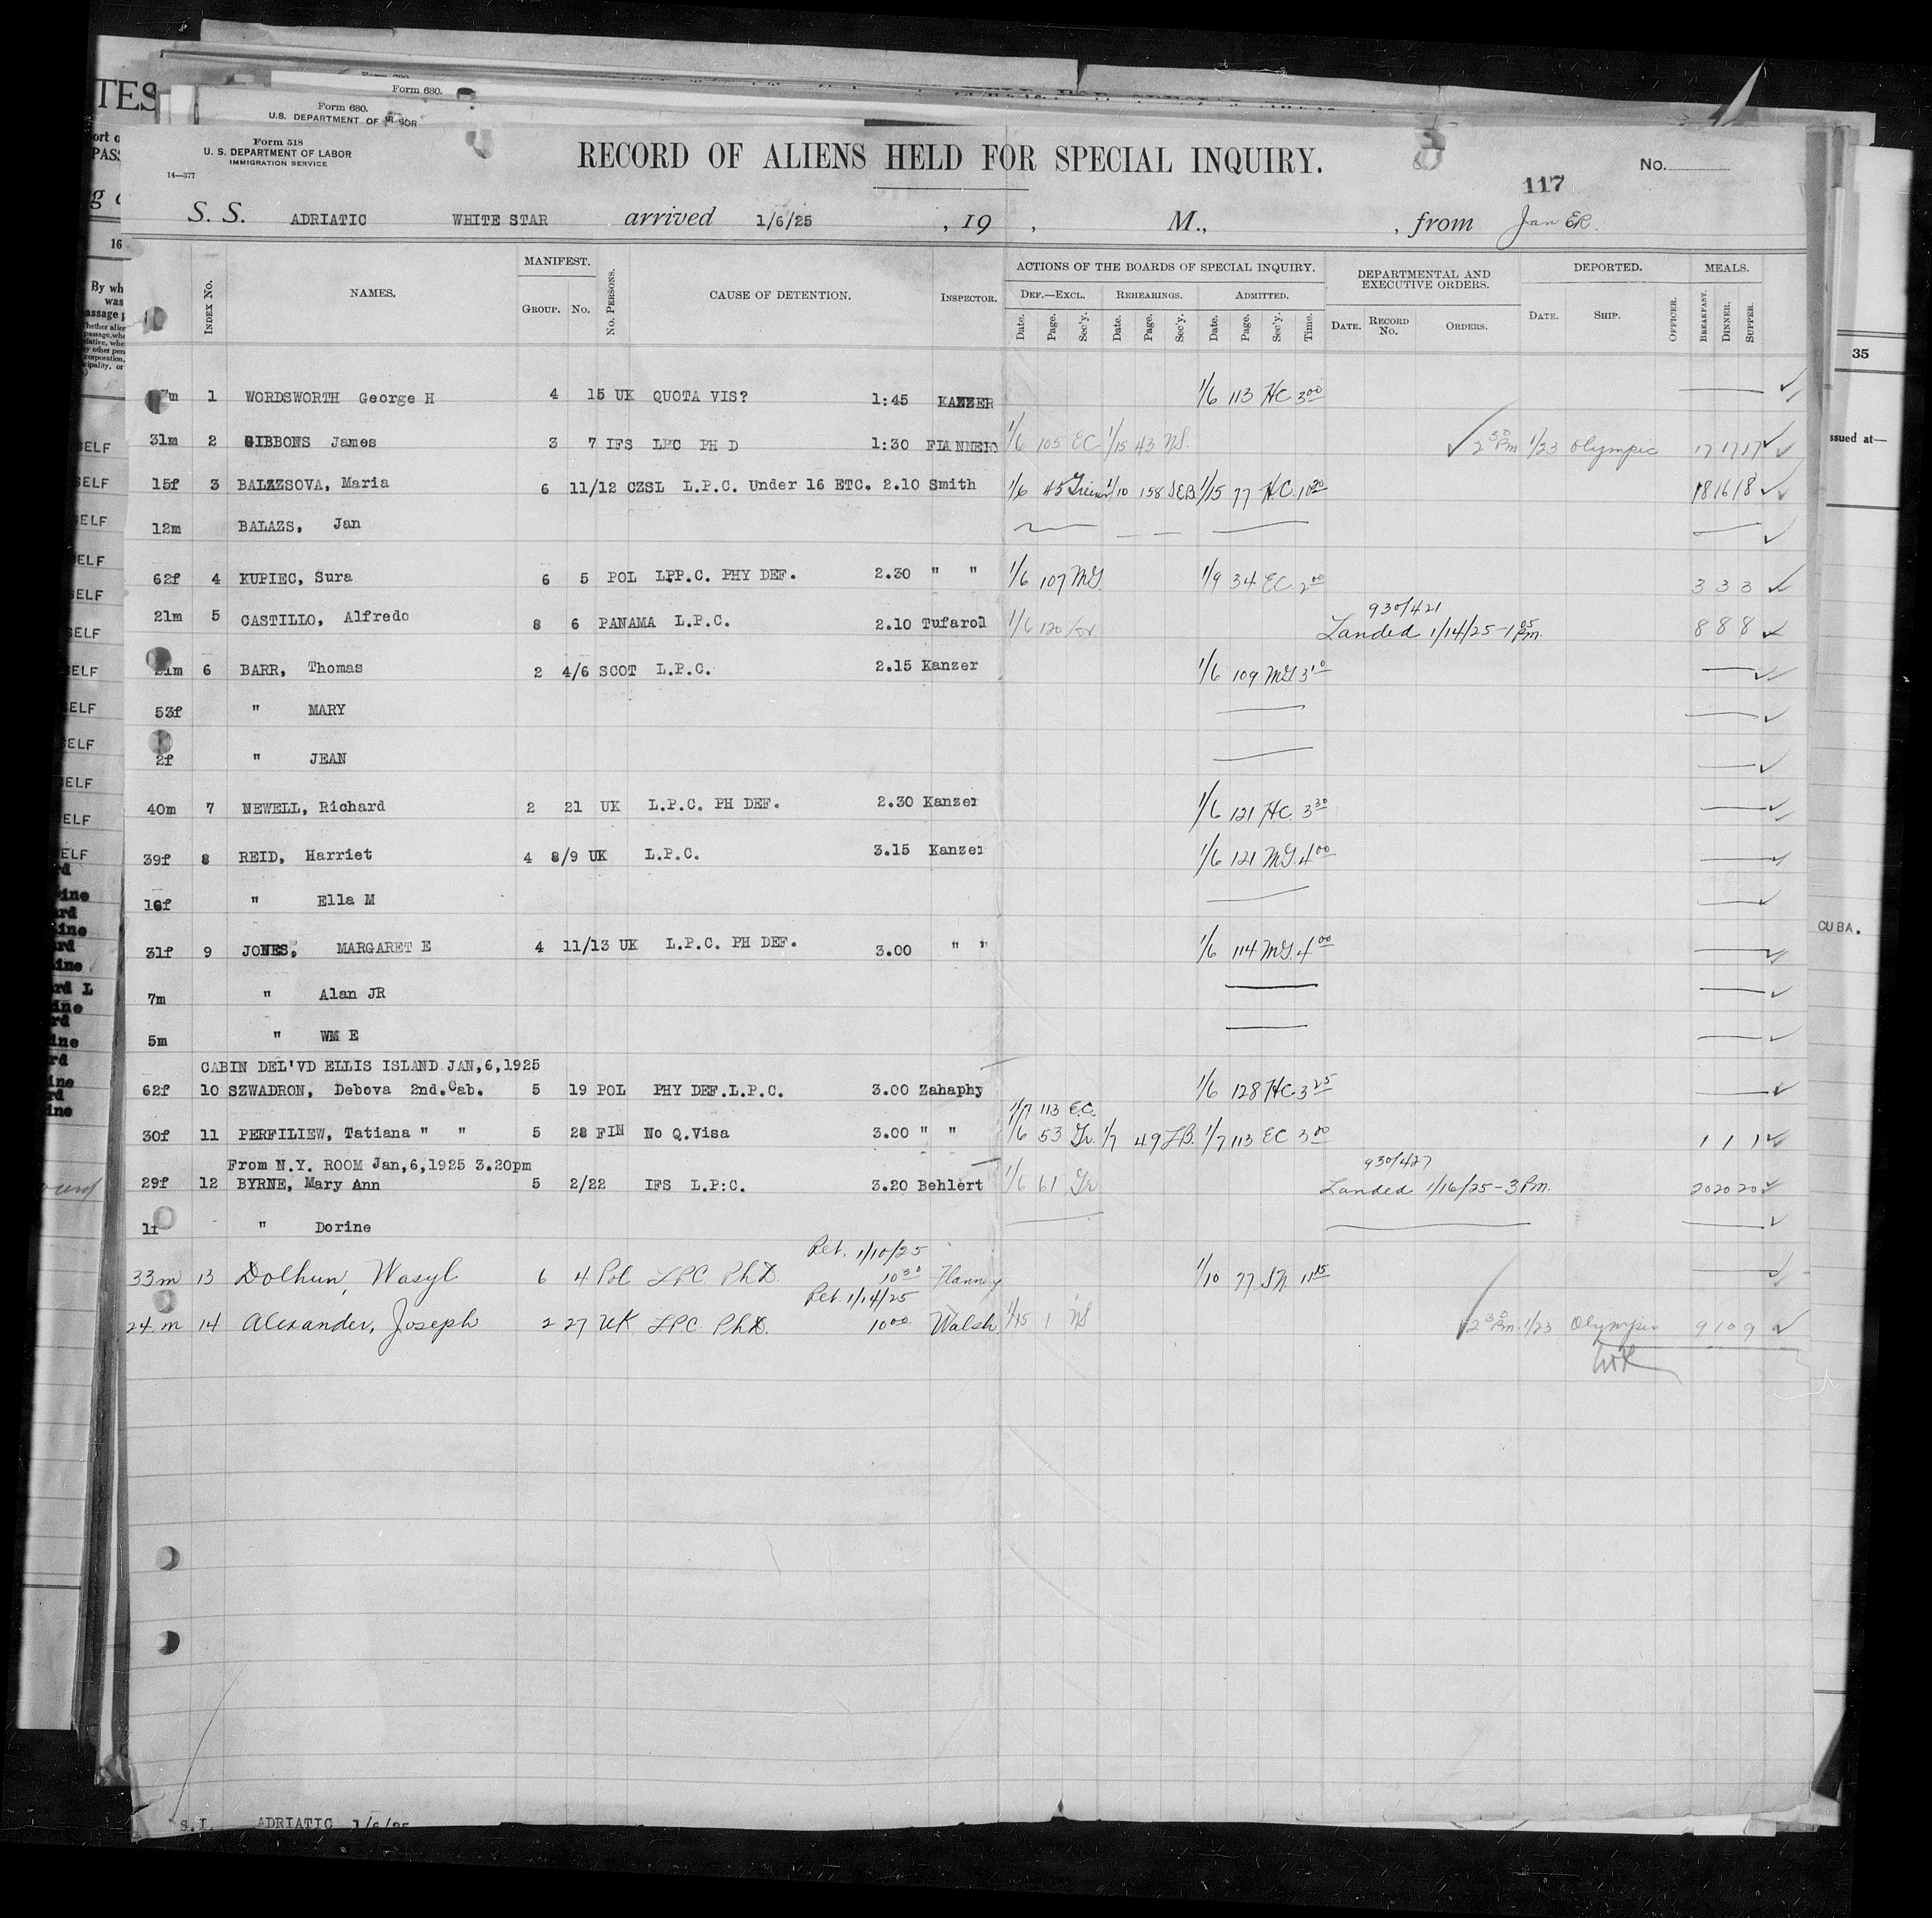 TES
Form 680.
Form 680.
U.S. DEPARTMENT OF
Form 518
U. S. DEPARTMENT OF LABOR
IMMIGRATION SERVICE
14—377
RECORD OF ALIENS HELD FOR SPECIAL INQUIRY.
No.
117
S. S. ADRIATIC WHITE STAR arrived 1/6/25 , 19 , M., , from
INDEX No. NAMES. MANIFEST. GROUP. No. No. PERSONS. CAUSE OF DETENTION. INSPECTOR. ACTIONS OF THE BOARDS OF SPECIAL INQUIRY. DEPARTMENTAL AND EXECUTIVE ORDERS. DEPORTED. MEALS.
DEF.—EXCL. REHEARINGS. ADMITTED.
Date. Page. Sec'y. Date. Page. Sec'y. Date. Page. Sec'y. Time. DATE. RECORD No. ORDERS. DATE. SHIP. OFFICER. BREAKFAST. DINNER. SUPPER.
1 WORDSWORTH George H 4 15 UK QUOTA VIS? 1:45 KANZER 1/6 113 HC 3 00
31m 2 GIBBONS James 3 7 IFS LPC PH D 1:30 FLANNERY 1/6 105 EC 1/15 43 NS. 2 30 Pm 1/23 Olympic 17 17 17
15f 3 BALAZSOVA, Maria 6 11/12 CZSL L.P.C. Under 16 ETC. 2.10 Smith 1/6 45 1/10 158 1/15 77 HC 10 20 18 16 18
12m BALAZS, Jan
62f 4 KUPIEC, Sura 6 5 POL LPP.C. PHY DEF. 2.30 " " 1/6 107 MG. 1/9 34 EC. 2 00 3 3 3
930/421
21m 5 CASTILLO, Alfredo 8 6 PANAMA L.P.C. 2.10 Tufarol 1/6 120 Landed 1/14/25 - 1 05 Pm. 8 8 8
6 BARR, Thomas 2 4/6 SCOT L.P.C. 2.15 Kanzer 1/6 109 MG 3 10
53f " MARY
2f " JEAN
40m 7 NEWELL, Richard 2 21 UK L.P.C. PH DEF. 2.30 Kanzer 1/6 121 HC. 3 30
39f 8 REID, Harriet 4 8/9 UK L.P.C. 3.15 Kanzer 1/6 121 MG. 4 00
16f " Ella M
31f 9 JONES, MARGARET E 4 11/13 UK L.P.C. PH DEF. 3.00 " " 1/6 114 MG. 4 00
7m " Alan JR
5m " WM E
CABIN DEL'VD ELLIS ISLAND JAN,6,1925
62f 10 SZWADRON, Debova 2nd.Cab. 5 19 POL PHY DEF.L.P.C. 3.00 Zahaphy 1/6 128 HC 3 25
1/7 113 E.C.
30f 11 PERFILIEW, Tatiana " " 5 28 FIN No Q.Visa 3.00 " " 1/6 53 Gr. 1/7 49 1/7 113 EC 3 00 1 1 1
From N.Y. ROOM Jan,6,1925 3.20pm
930/427
29f 12 BYRNE, Mary Ann 5 2/22 IFS L.P:C. 3.20 Behlert 1/6 61 Gr Landed 1/16/25 - 3 Pm. 20 20 20
11 " Dorine
Ret. 1/10/25
33m 13 Dolhun, Wasyl 6 4 Pol LPC PhD. 10 30 Flannery 1/10 77 11 15
Ret. 1/14/25
24m 14 Alexander, Joseph 2 27 UK LPC PhD. 10 00 Walsh 1/15 1 NS 2 30 Pm. 1/23 Olympic 9 10 9
S.I. ADRIATIC 1/6/25
35
ssued at—
CUBA.